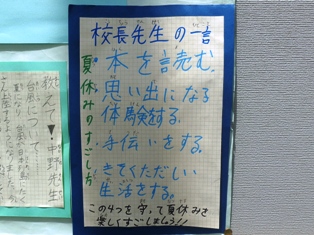 校長先生の一言
夏休みのすごし方
本を読む。
思い出になる
体験をする。
手伝いをする。
きそくただしい
生活をする。
この4つを守って夏休みを
楽しくすごしましょう!!
教えて♥中野先生
台風について